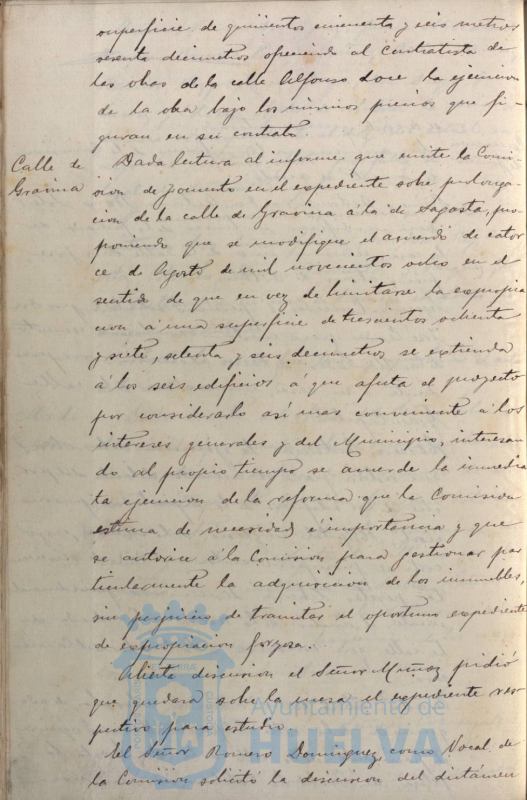 superficie de quinientos cincuenta y seis metros
sesenta decimetros ofreciendo al contratista de
las obras de la calle Alfonso doce la ejecucion
de la obra bajo los mismos precios que fi-
guran en su contrato.
Calle de
Gravina
Dada lectura al informe que emite la Comi
sion de Fomento en el expediente sobre prolonga
cion de la calle de Gravina á la de Sagasta, pro
poniendo que se modifique el acuerdo de cator
ce de Agosto de mil novecientos ocho en el
sentido de que en vez de limitarse la expropia
cion á una superficie de trescientos ochenta
y siete, setenta y seis decimetros se extienda
á los seis edificios á que afecta el proyecto
por considerarlo así mas conveniente á los
intereses generales y del Municipio, interesan
do al propio tiempo se acuerde la inmedia
ta ejecucion de la reforma que la Comision
estima de necesidad é importancia y que
se autorice á la Comision para gestionar par
ticularmente la adquisicion de los inmuebles,
sin perjuicio de tramitar el oportuno expediente
de expropiacion forzosa.
Abierta discusion el Señor Muñoz pidió
que quedara sobre la mesa el expediente res
pectivo para estudio.
El Señor Romero Dominguez, como Vocal de
la Comision solicitó la discusion del dictámen
Ayuntamiento de
HUELVA